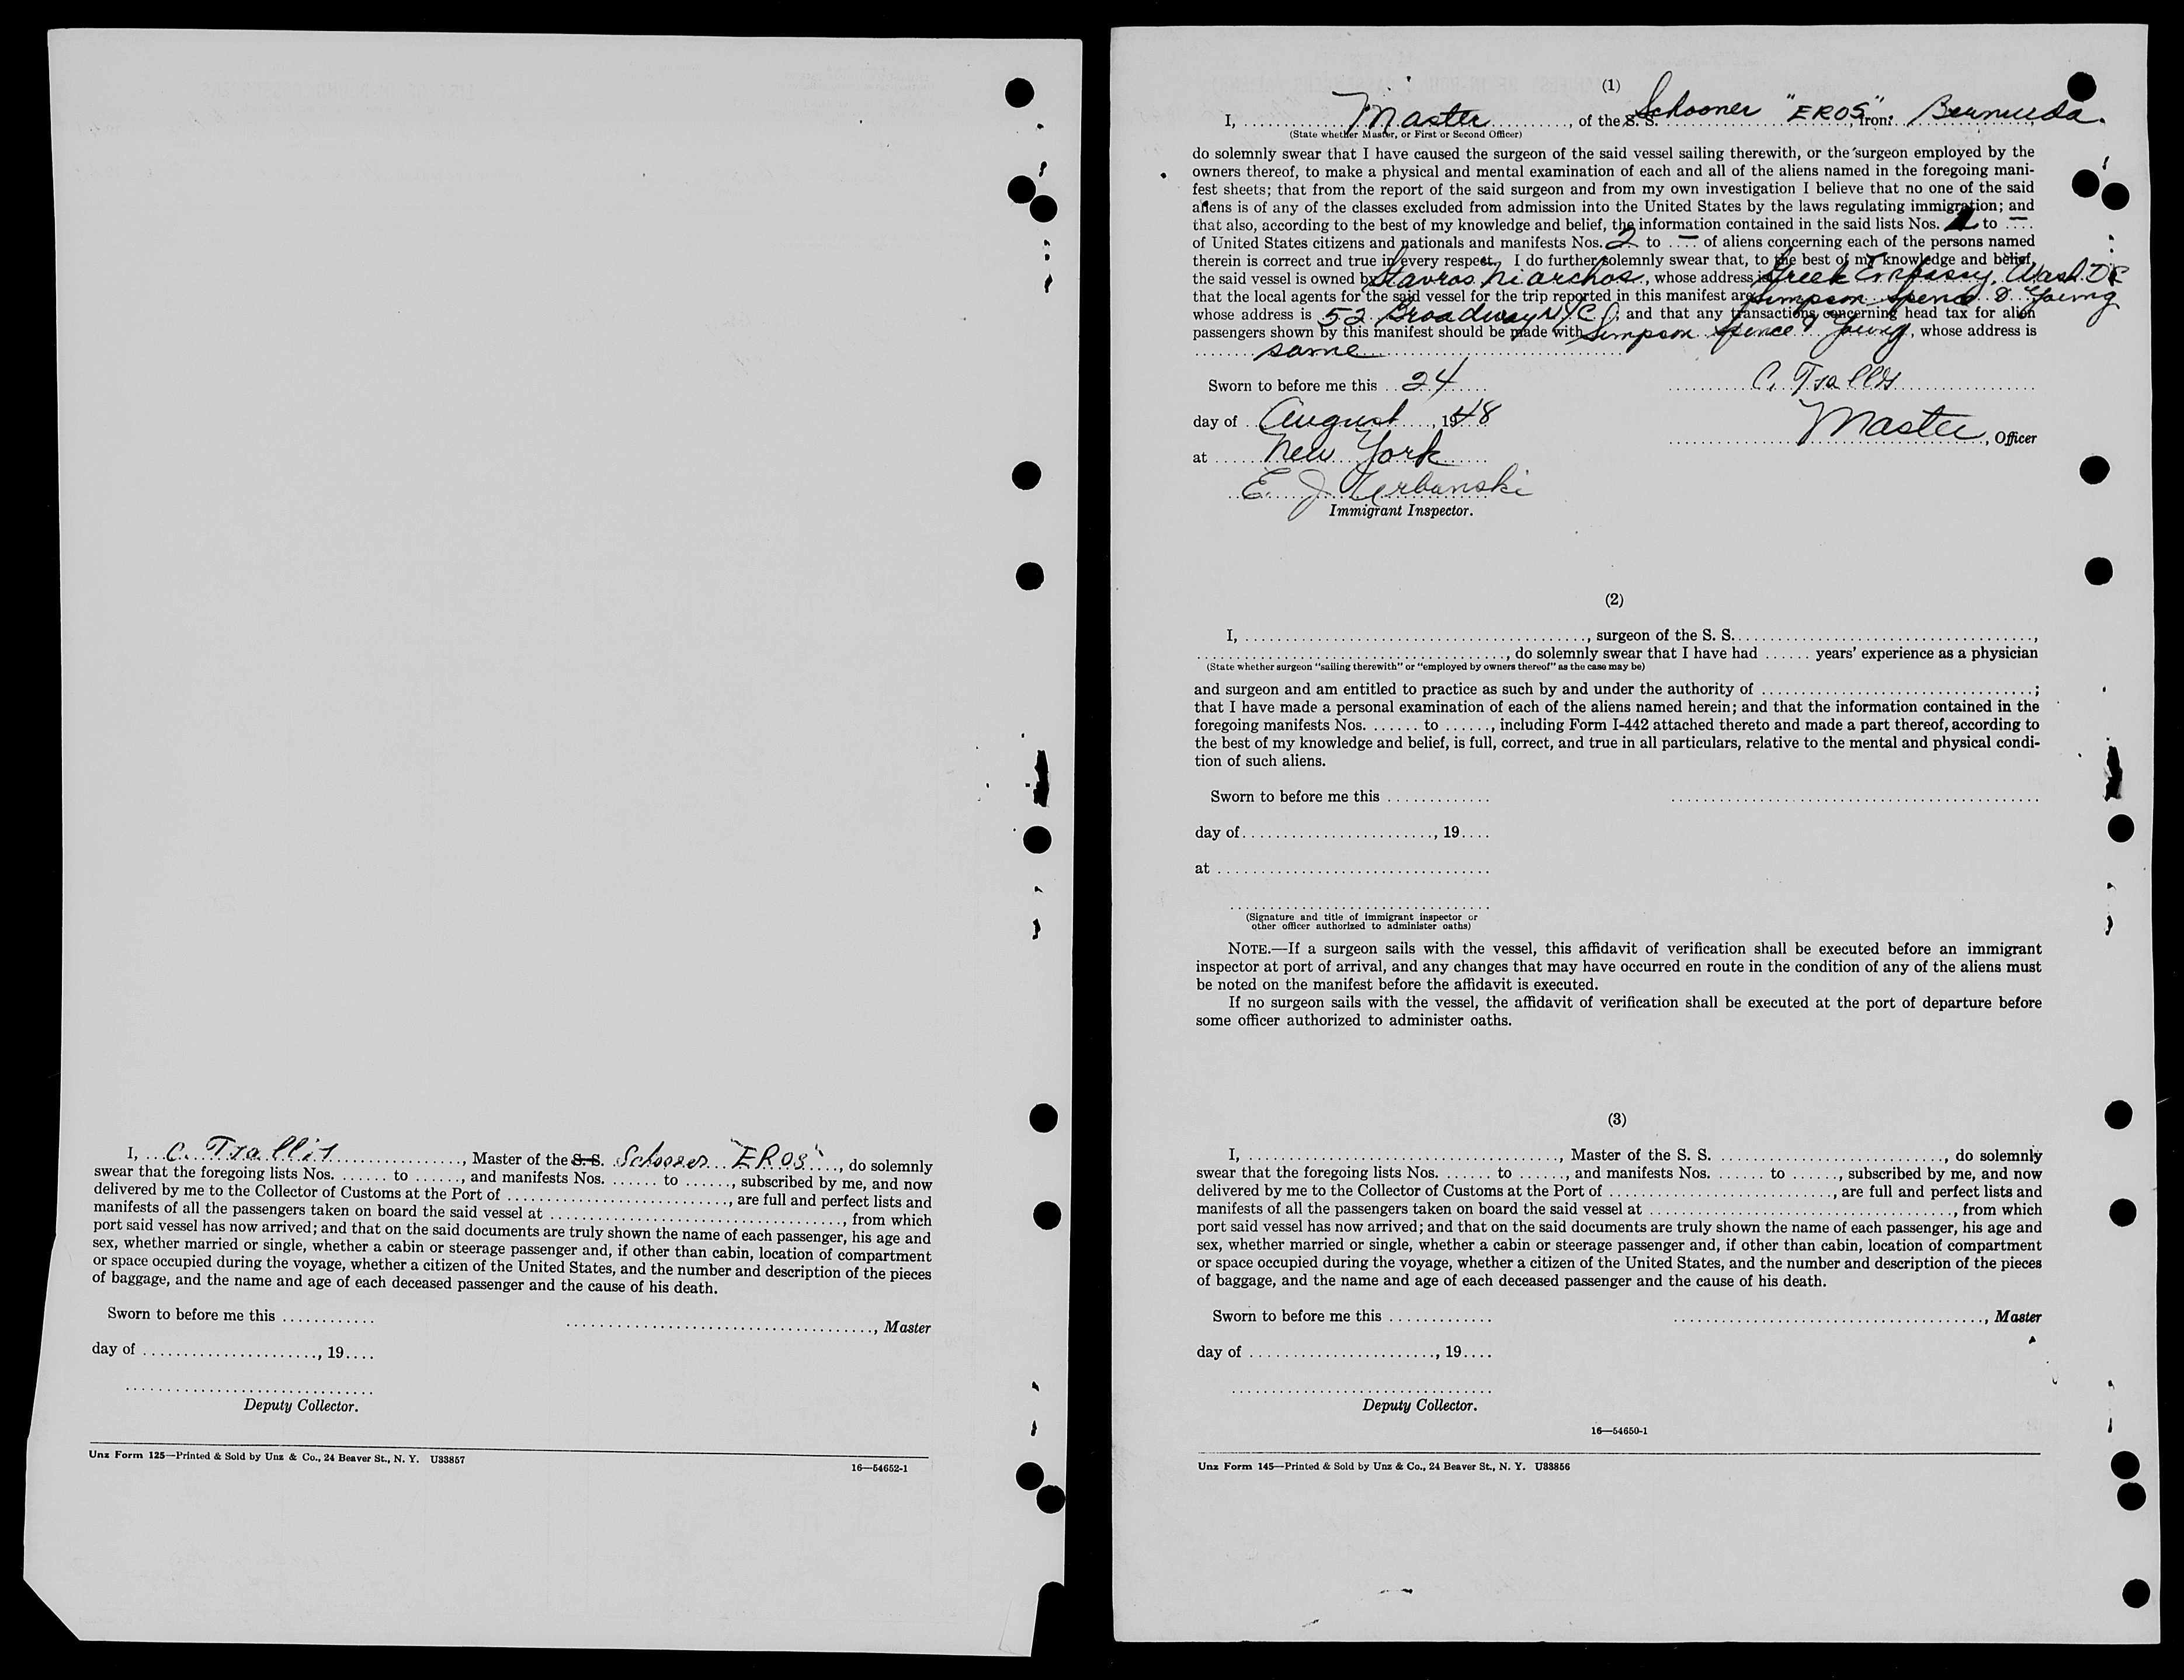 I, ...C. Tsallis..............., Master of the S. S. Schooner "EROS"...., do solemnly
swear that the foregoing lists Nos. ...... to ......, and manifests Nos. ...... to ......, subscribed by me, and now
delivered by me to the Collector of Customs at the Port of ..........................., are full and perfect lists and
manifests of all the passengers taken on board the said vessel at ...................................., from which
port said vessel has now arrived; and that on the said documents are truly shown the name of each passenger, his age and
sex, whether married or single, whether a cabin or steerage passenger and, if other than cabin, location of compartment
or space occupied during the voyage, whether a citizen of the United States, and the number and description of the pieces
of baggage, and the name and age of each deceased passenger and the cause of his death.
Sworn to before me this ............
......................................, Master
day of ....................., 19....
Deputy Collector.
Unz Form 125—Printed & Sold by Unz & Co., 24 Beaver St., N. Y. U33857
16—54652-1
(1)
I, ............Master..........., of the S. S. Schooner "EROS", from Bermuda.
(State whether Master, or First or Second Officer)
do solemnly swear that I have caused the surgeon of the said vessel sailing therewith, or the surgeon employed by the
owners thereof, to make a physical and mental examination of each and all of the aliens named in the foregoing mani-
fest sheets; that from the report of the said surgeon and from my own investigation I believe that no one of the said
aliens is of any of the classes excluded from admission into the United States by the laws regulating immigration; and
that also, according to the best of my knowledge and belief, the information contained in the said lists Nos. 1 to —
of United States citizens and nationals and manifests Nos. 2 to — of aliens concerning each of the persons named
therein is correct and true in every respect. I do further solemnly swear that, to the best of my knowledge and belief,
the said vessel is owned by Stavros Niarchos, whose address is Greek Embassy, Wash. DC
that the local agents for the said vessel for the trip reported in this manifest are Simpson Spence & Young
whose address is 52 Broadway NYC; and that any transactions concerning head tax for alien
passengers shown by this manifest should be made with Simpson Spence & Young, whose address is
........same........
Sworn to before me this ..24....
C. Tsallis
day of ..August...., 1948
Master, Officer
at ......New York......
E. J. Urbanski
Immigrant Inspector.
(2)
I, .........................................., surgeon of the S. S.....................................,
......................................, do solemnly swear that I have had ...... years' experience as a physician
(State whether surgeon "sailing therewith" or "employed by owners thereof" as the case may be)
and surgeon and am entitled to practice as such by and under the authority of .................................;
that I have made a personal examination of each of the aliens named herein; and that the information contained in the
foregoing manifests Nos. ...... to ......, including Form I-442 attached thereto and made a part thereof, according to
the best of my knowledge and belief, is full, correct, and true in all particulars, relative to the mental and physical condi-
tion of such aliens.
Sworn to before me this .............
day of......................., 19....
at .................................
(Signature and title of immigrant inspector or
other officer authorized to administer oaths)
NOTE.—If a surgeon sails with the vessel, this affidavit of verification shall be executed before an immigrant
inspector at port of arrival, and any changes that may have occurred en route in the condition of any of the aliens must
be noted on the manifest before the affidavit is executed.
If no surgeon sails with the vessel, the affidavit of verification shall be executed at the port of departure before
some officer authorized to administer oaths.
(3)
I, ......................................, Master of the S. S. ..........................., do solemnly
swear that the foregoing lists Nos. ...... to ......, and manifests Nos. ...... to ......, subscribed by me, and now
delivered by me to the Collector of Customs at the Port of ..........................., are full and perfect lists and
manifests of all the passengers taken on board the said vessel at ....................................., from which
port said vessel has now arrived; and that on the said documents are truly shown the name of each passenger, his age and
sex, whether married or single, whether a cabin or steerage passenger and, if other than cabin, location of compartment
or space occupied during the voyage, whether a citizen of the United States, and the number and description of the pieces
of baggage, and the name and age of each deceased passenger and the cause of his death.
Sworn to before me this .............
......................................, Master
day of ......................., 19....
Deputy Collector.
16—54650-1
Unz Form 145—Printed & Sold by Unz & Co., 24 Beaver St., N. Y. U33856